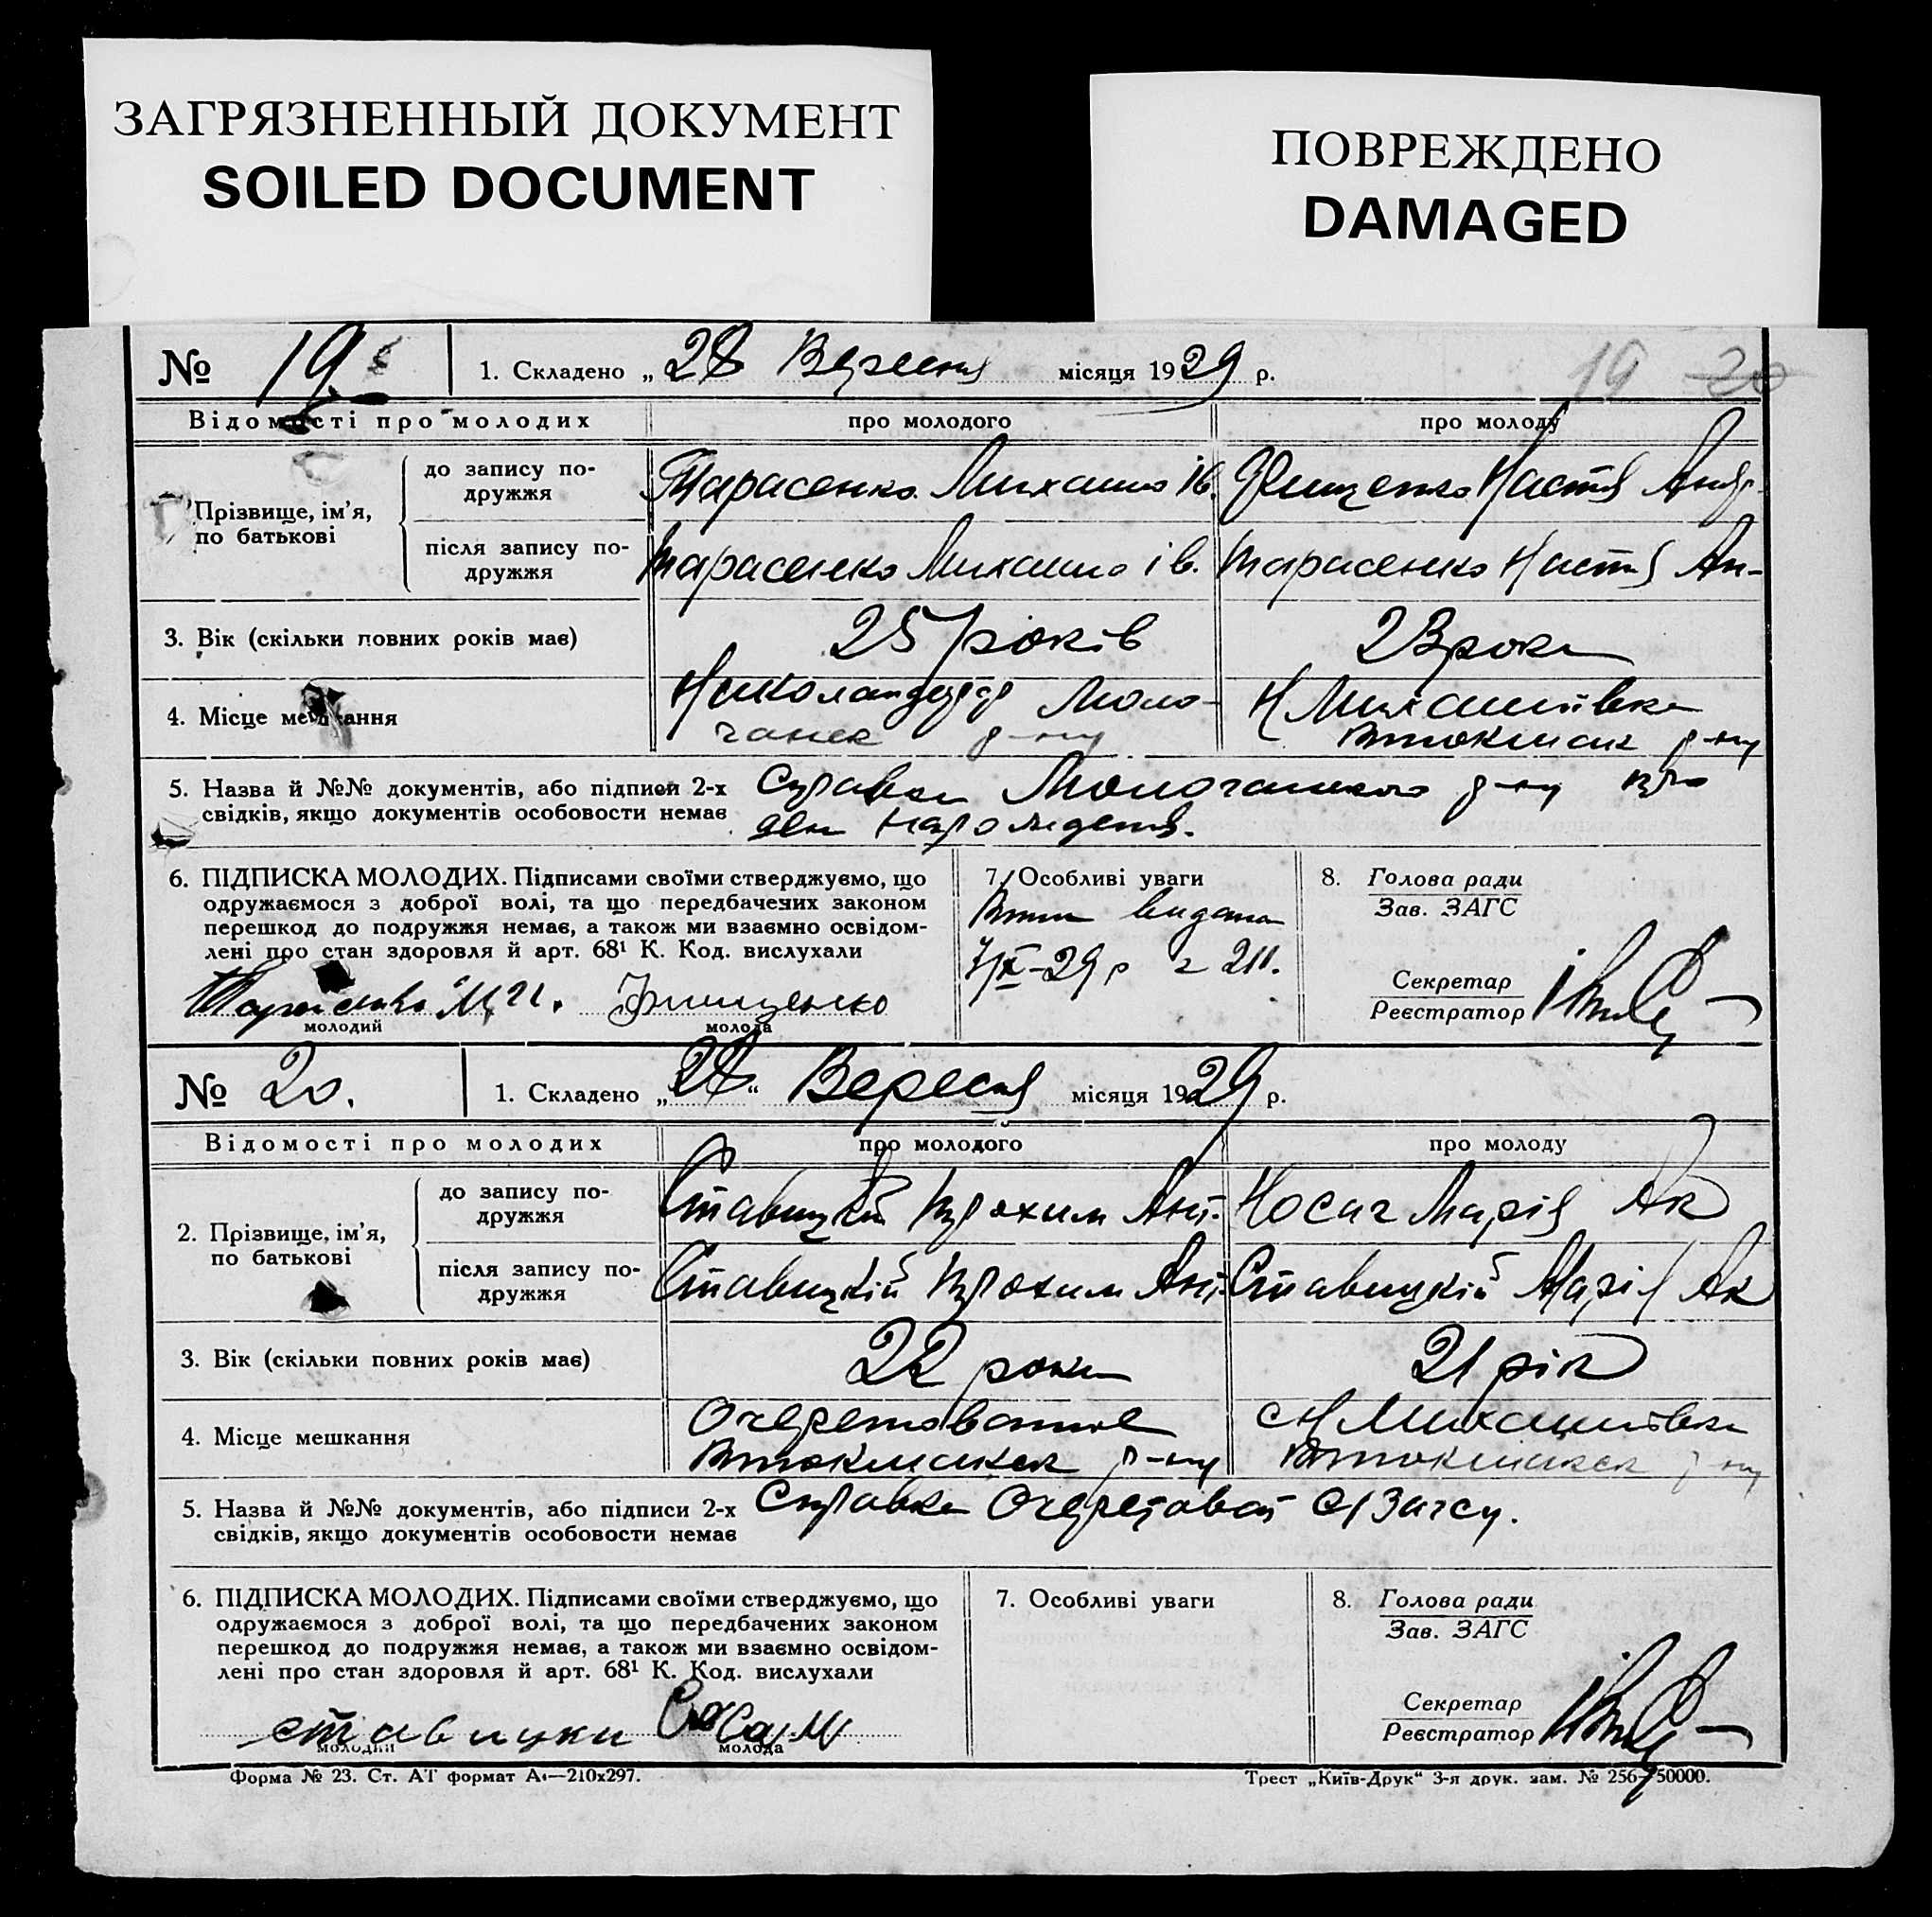 ЗАГРЯЗНЕННЫЙ ДОКУМЕНТ
SOILED DOCUMENT
ПОВРЕЖДЕНО
DAMAGED
№ 19
1. Складено „28 Вересня місяця 1929 р.
19 20
Відомості про молодих
про молодого
про молоду
Прізвище, ім'я,
по батькові
до запису по-
дружжя
Тарасенко Михайло ів.
Настя Андр.
після запису по-
дружжя
Тарасенко Михайло ів.
Тарасенко Настя Ан-
3. Вік (скільки повних років має)
25 років
23 роки
4. Місце мешкання
Моло-
чанск р-ну
Н Михайлівка
Втокмак р-ну
5. Назва й №№ документів, або підписи 2-х
свідків, якщо документів особовости немає
Справка Молочанского р-ну про
день народження.
6. ПІДПИСКА МОЛОДИХ. Підписами своїми стверджуємо, що
одружаємося з доброї волі, та що передбачених законом
перешкод до подружжя немає, а також ми взаємно освідом-
лені про стан здоровля й арт. 68¹ К. Код. вислухали
Тарасенко М. И.
молодий
молода
7. Особливі уваги
видана
29 р 211.
8. Голова ради
Зав. ЗАГС
Секретар
Реєстратор
№ 20.
1. Складено „28“ Вересня місяця 1929 р.
Відомості про молодих
про молодого
про молоду
2. Прізвище, ім'я,
по батькові
до запису по-
дружжя
Ставицкій Прохим Ант.
Носач Марія Як
після запису по-
дружжя
Ставицкій Прохим Ант.
Ставицкій Марія Як
3. Вік (скільки повних років має)
22 роки
21 рік
4. Місце мешкання
Очеретоватое
Втокмакск р-ну
с Н Михайлівка
Втокмакск р-ну
5. Назва й №№ документів, або підписи 2-х
свідків, якщо документів особовости немає
Справка Очеретоват с/Загсу.
6. ПІДПИСКА МОЛОДИХ. Підписами своїми стверджуємо, що
одружаємося з доброї волі, та що передбачених законом
перешкод до подружжя немає, а також ми взаємно освідом-
лені про стан здоровля й арт. 68¹ К. Код. вислухали
ставицки
молодий
молода
7. Особливі уваги
8. Голова ради
Зав. ЗАГС
Секретар
Реєстратор
Форма № 23. Ст. АТ формат А₄—210х297.
Трест „Київ-Друк“ 3-я друк. зам. № 256—50000.